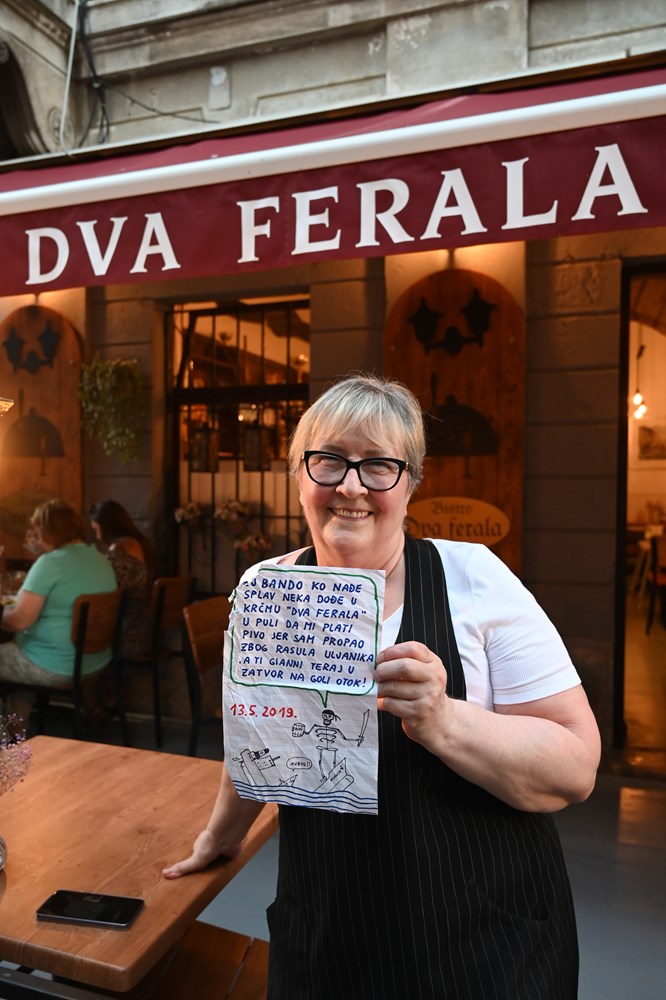 DVA FERALA
Bistro
Dva ferala
BANDO KO NAĐE
SPLAV NEKA DOĐE U
KRČMU "DVA FERALA"
U PULI DA MI PLATI
PIVO JER SAM PROPAO
ZBOG RASULA ULJANIKA
.A TI GIANNI TERAJ U
ZATVOR NA GOLI OTOK!
13.5.2019.